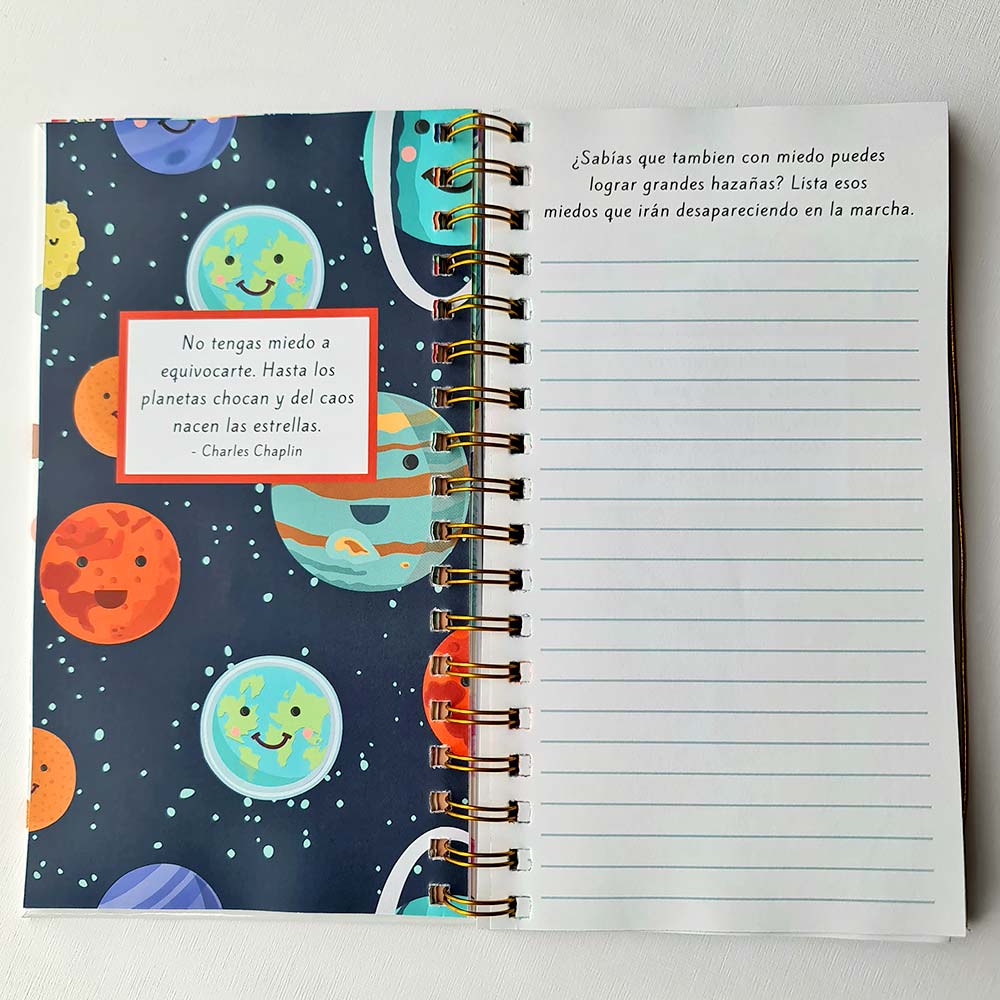 No tengas miedo a
equivocarte. Hasta los
planetas chocan y del caos
nacen las estrellas.
- Charles Chaplin
¿Sabías que tambien con miedo puedes
lograr grandes hazañas? Lista esos
miedos que irán desapareciendo en la marcha.